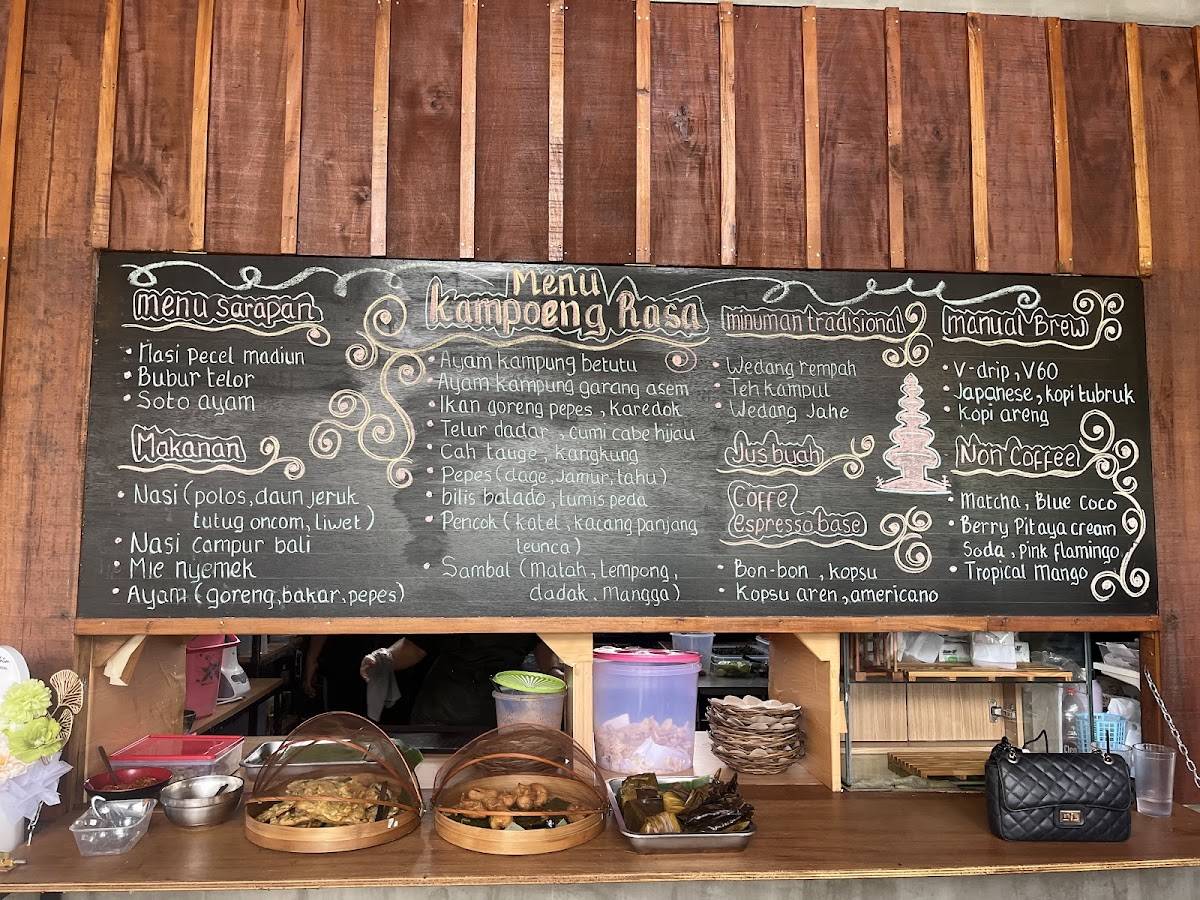 Menu Sarapan
• Nasi Pecel madiun
• Bubur telor
• Soto ayam
Makanan
• Nasi (polos, daun jeruk
tutug oncom, liwet)
• Nasi campur bali
• Mie nyemek
• Ayam (goreng, bakar, pepes)
Menu
Kampoeng Rasa
• Ayam kampung betutu
• Ayam kampung garang asem
• Ikan goreng pepes, karedok
• Telur dadar, cumi cabe hijau
• Cah tauge, kangkung
• Pepes (dage, Jamur, tahu)
• bilis balado, tumis peda
• Pencok (katel, kacang panjang
leunca)
• Sambal (Matah, Lempong,
dadak, Mangga)
minuman tradisional
• Wedang rempah
• Teh kampul
• Wedang Jahe
Jus buah
Coffe
espresso base
• Bon-bon, kopsu
• Kopsu aren, americano
manual Brew
• V-drip, V60
• Japanese, kopi tubruk
• kopi areng
Non Coffee
• Matcha, Blue Coco
• Berry Pitaya cream
Soda, pink flamingo
• Tropical Mango